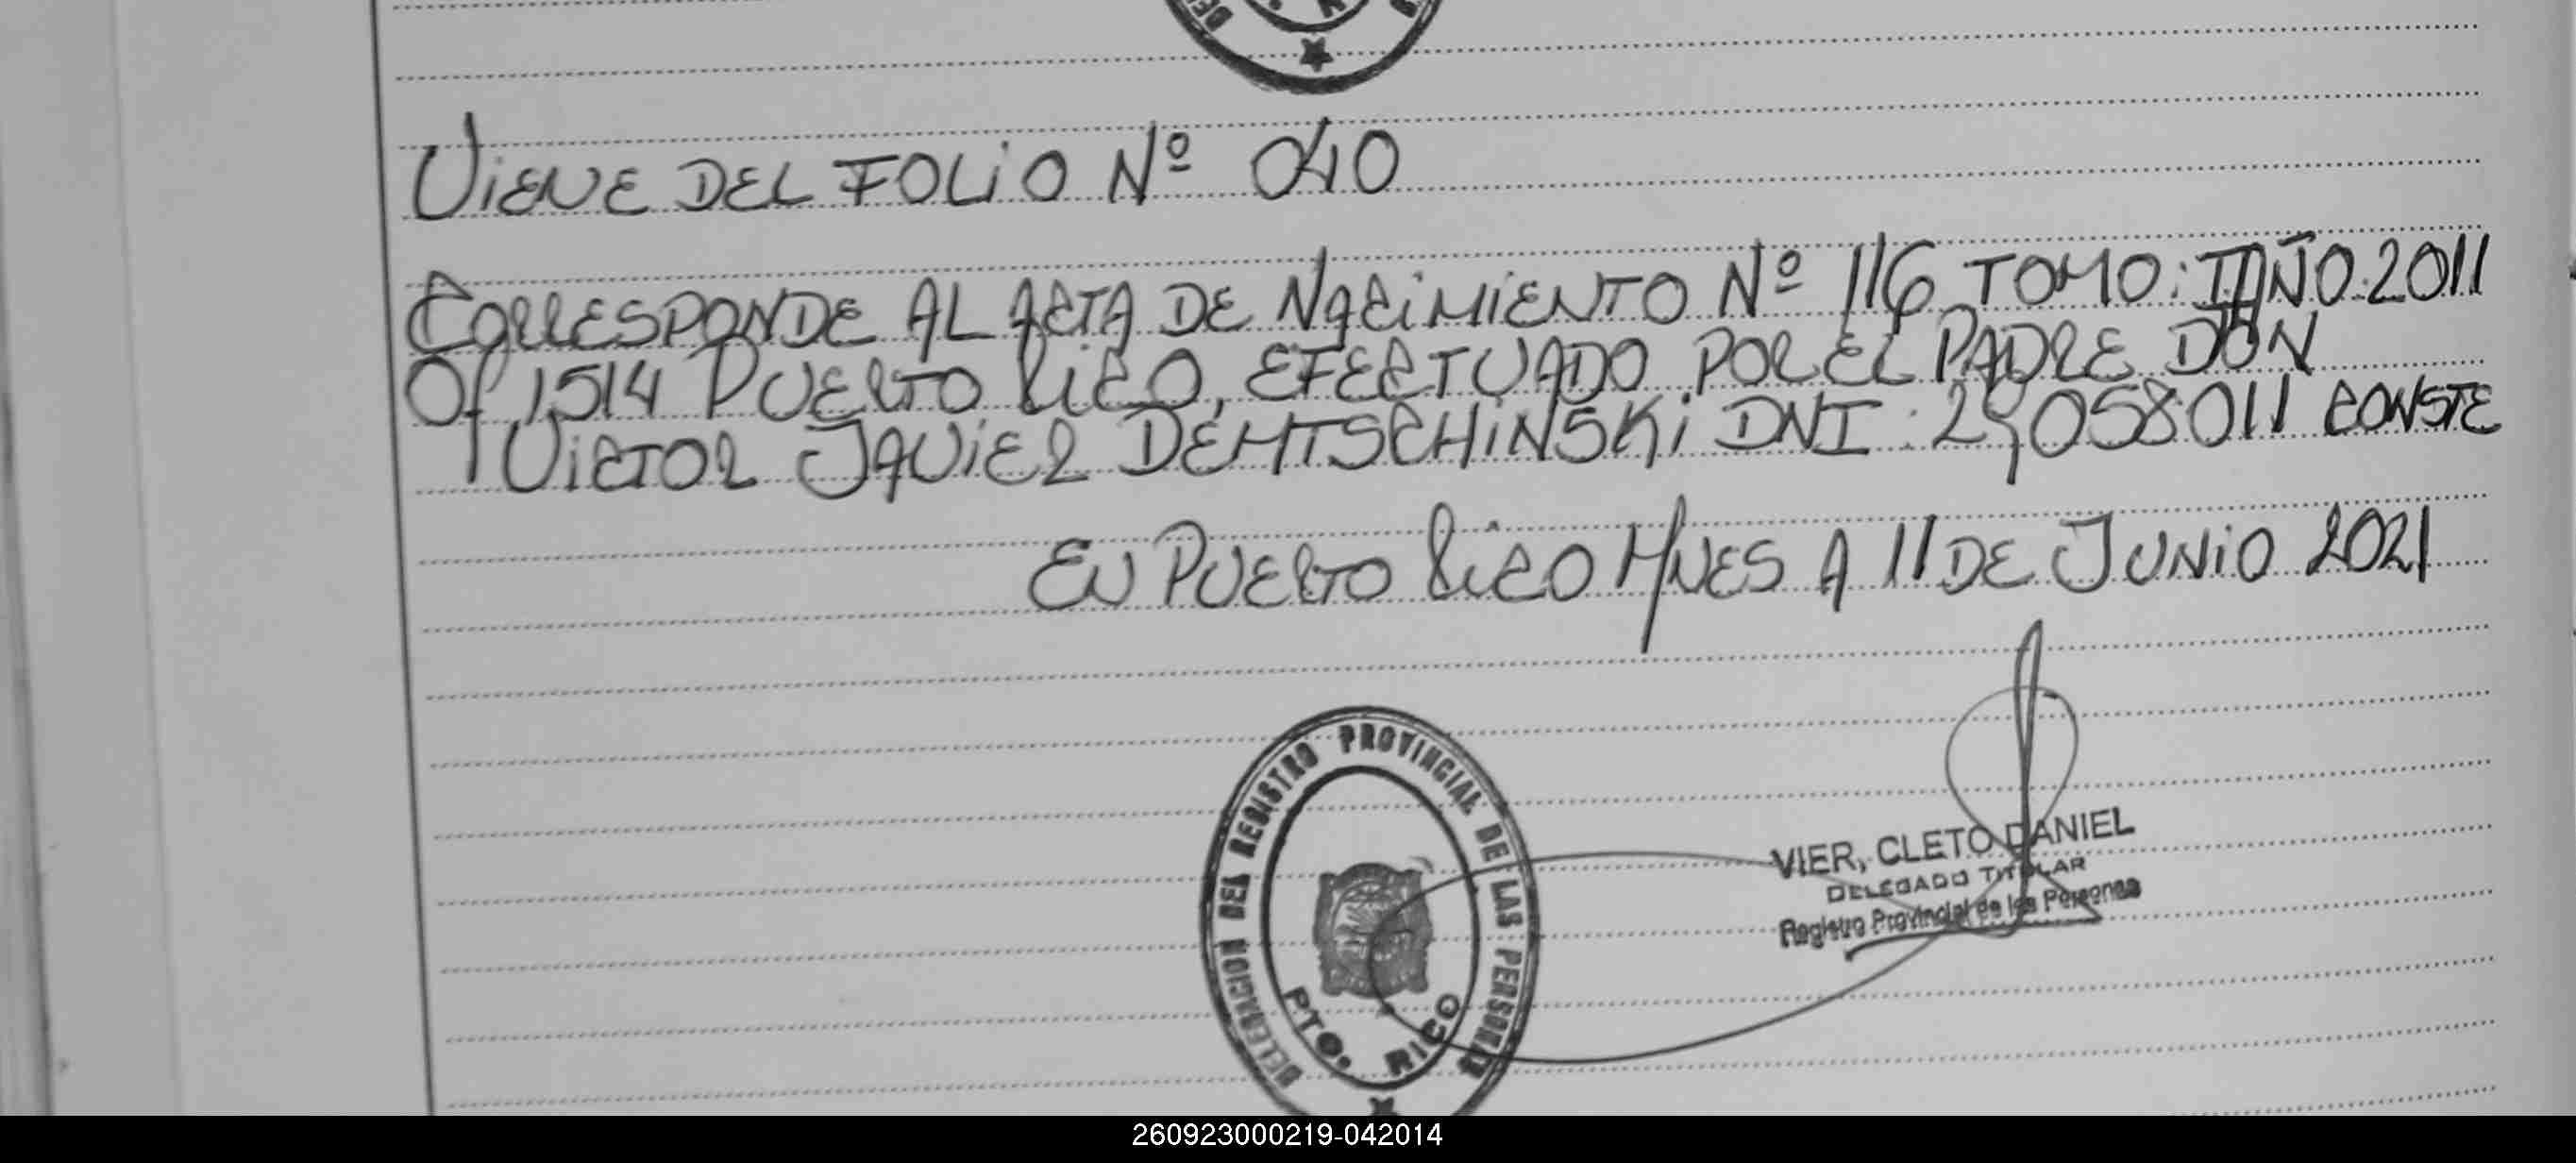 VIENE DEL FOLIO Nº 040
CORRESPONDE AL ACTA DE NACIMIENTO Nº 116 TOMO: I AÑO: 2011
Of 1514 PUERTO RICO, EFECTUADO POR EL PADRE DON
VICTOR JAVIER DEMTSCHINSKI DNI: 29058011 CONSTE
EN PUERTO RICO MNES A 11 DE JUNIO 2021
DELEGACION DEL REGISTRO PROVINCIAL DE LAS PERSONAS
PTO. RICO
VIER, CLETO DANIEL
DELEGADO TITULAR
Registro Provincial de las Personas
260923000219-042014